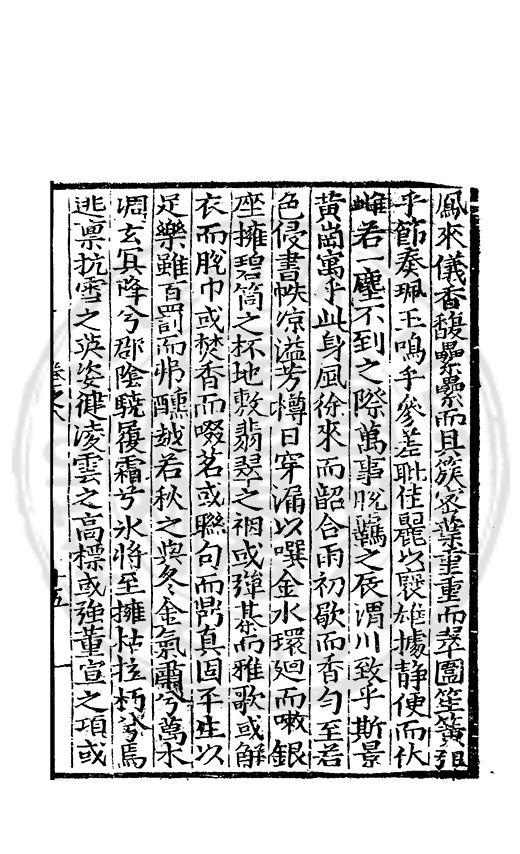 鳳來儀香馥纍纍而且簇密葉重重而翠圍笙簧徂
乎節奏珮玉鳴乎參差耻佳麗以褻雄據靜便而伏
雌若一塵不到之際萬事脫羈之辰渭川致乎斯景
黃崗寓乎此身風徐來而韶合雨初歇而香勻至若
色侵書帙凉溢芳樽日穿漏以噀金水環廻而嗽銀
座擁碧筒之杯地敷翡翠之裀或彈棊而雅歌或解
衣而脫巾或焚香而啜茗或聯句而鼎真固平生以
足樂雖百罰而弗醺越若秋之與冬金氣肅兮萬木
凋玄冥降兮郊陰驍履霜兮氷將至擁枯拉朽兮焉
逃禀抗雪之英姿健凌雲之高標或強董宣之項或
卷之六
十五